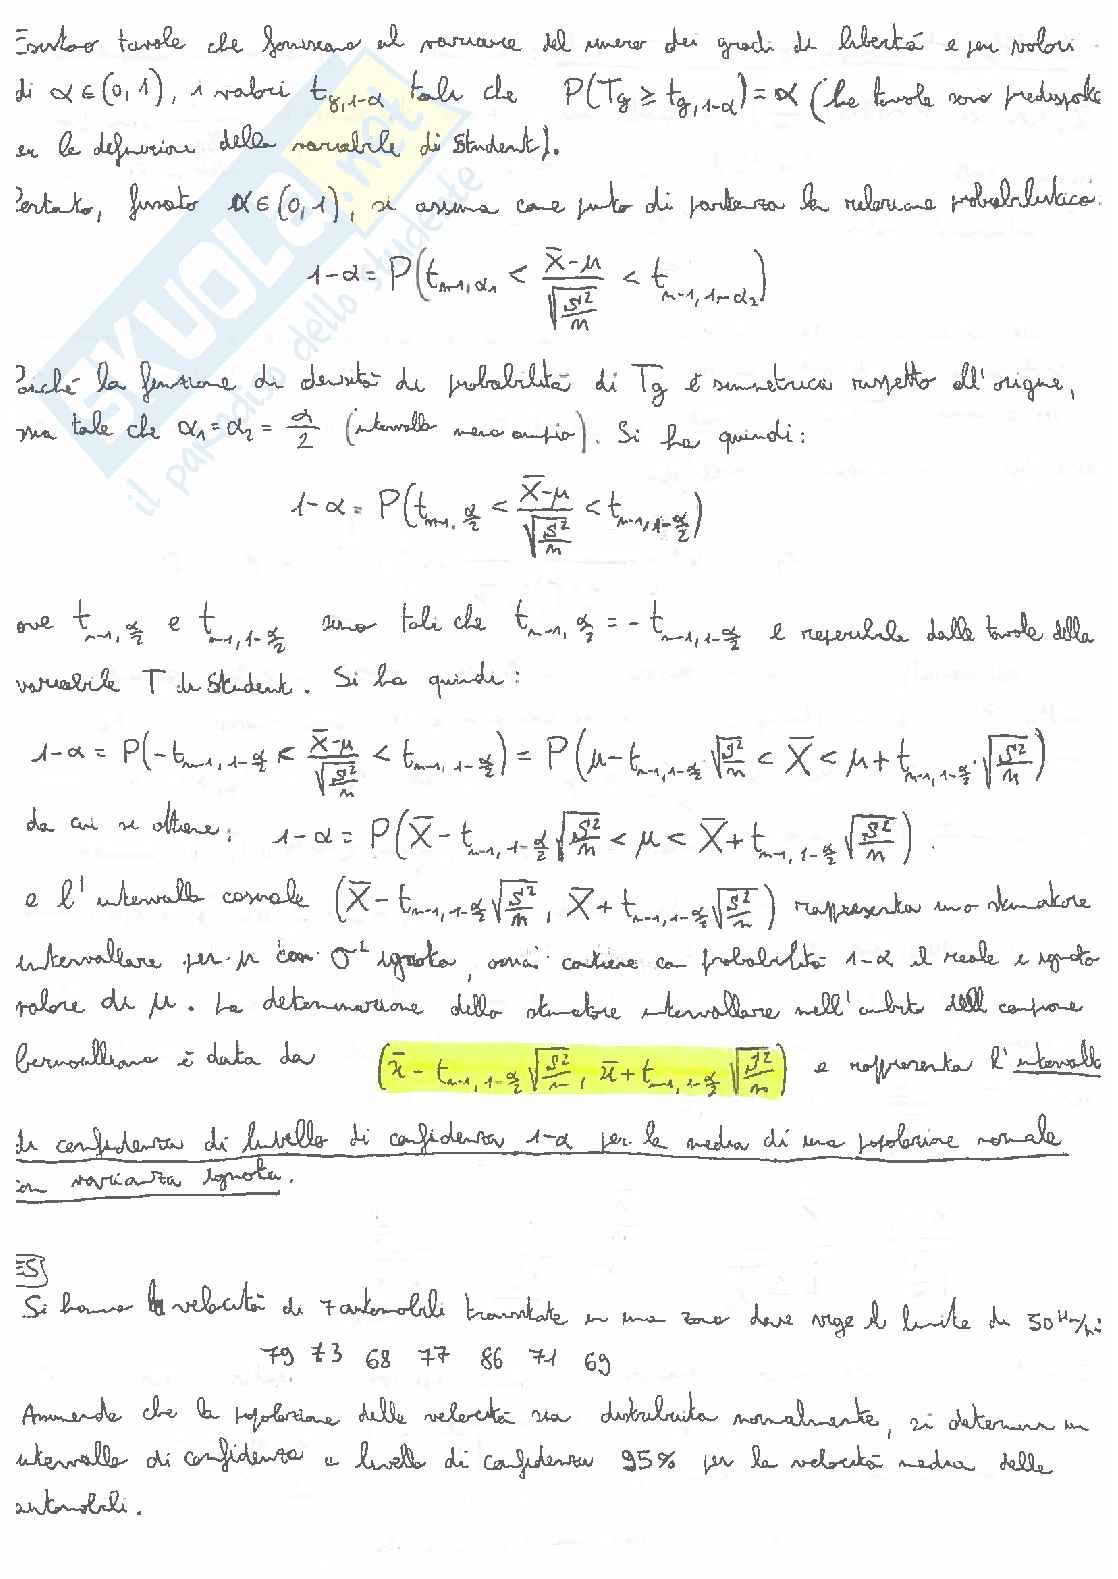 Esistono tavole che forniscono al variare del numero dei gradi di libertà e per valori
di α∈(0,1), i valori t_{g,1-α} tali che P(T_g ≥ t_{g,1-α}) = α (Le tavole sono predisposte
la definizione della variabile di Student).
Pertanto, fissato α∈(0,1), si assuma come punto di partenza la relazione probabilistica:
1-α = P(t_{n-1,α₁} < (X̄-μ)/√(S²/n) < t_{n-1,1-α₂})
Poiché la funzione di densità di probabilità di T_g è simmetrica rispetto all'origine,
sia tale che α₁=α₂=α/2 (intervallo meno ampio). Si ha quindi:
1-α = P(t_{n-1,α/2} < (X̄-μ)/√(S²/n) < t_{n-1,1-α/2})
ove t_{n-1,α/2} e t_{n-1,1-α/2} sono tali che t_{n-1,α/2} = -t_{n-1,1-α/2} e reperibile dalle tavole della
variabile T di Student. Si ha quindi:
1-α = P(-t_{n-1,1-α/2} < (X̄-μ)/√(S²/n) < t_{n-1,1-α/2}) = P(μ-t_{n-1,1-α/2}·√(S²/n) < X̄ < μ+t_{n-1,1-α/2}·√(S²/n))
da cui si ottiene: 1-α = P(X̄-t_{n-1,1-α/2}√(S²/n) < μ < X̄+t_{n-1,1-α/2}√(S²/n)).
e l'intervallo casuale (X̄-t_{n-1,1-α/2}√(S²/n), X̄+t_{n-1,1-α/2}√(S²/n)) rappresenta uno stimatore
intervallare per μ con σ² ignota, ossia contiene con probabilità 1-α il reale e ignoto
valore di μ. La determinazione dello stimatore intervallare nell'ambito del campione
bernoulliano è data da (x̄-t_{n-1,1-α/2}√(S²/n), x̄+t_{n-1,1-α/2}√(S²/n)) e rappresenta l'intervallo
di confidenza di livello di confidenza 1-α per la media di una popolazione normale
con varianza ignota.
ES
Si hanno le velocità di 7 automobili transitate in una zona dove vige il limite di 50 Km/h:
79 73 68 77 86 71 69
Ammende che la popolazione delle velocità sia distribuita normalmente, si determini un
intervallo di confidenza a livello di confidenza 95% per la velocità media delle
automobili.
SKUOLA.net
il paradiso dello studente